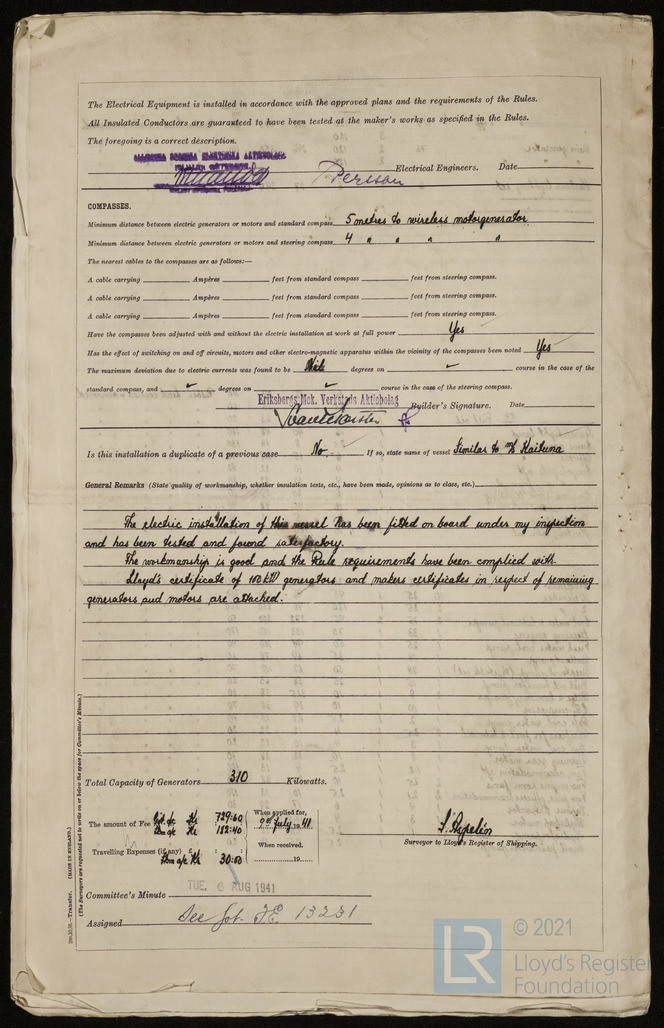 The Electrical Equipment is installed in accordance with the approved plans and the requirements of the Rules.
All Insulated Conductors are guaranteed to have been tested at the maker's works as specified in the Rules.
The foregoing is a correct description.
Persson Electrical Engineers. Date
COMPASSES.
Minimum distance between electric generators or motors and standard compass 5 metres to wireless motorgenerator
Minimum distance between electric generators or motors and steering compass 4 " " " "
The nearest cables to the compasses are as follows:—
A cable carrying Ampères feet from standard compass feet from steering compass.
A cable carrying Ampères feet from standard compass feet from steering compass.
A cable carrying Ampères feet from standard compass feet from steering compass.
Have the compasses been adjusted with and without the electric installation at work at full power Yes
Has the effect of switching on and off circuits, motors and other electro-magnetic apparatus within the vicinity of the compasses been noted Yes
The maximum deviation due to electric currents was found to be Nil degrees on ✓ course in the case of the
standard compass, and ✓ degrees on ✓ course in the case of the steering compass.
Eriksbergs Mek. Verkstads Aktiebolag
Builder's Signature. Date
Is this installation a duplicate of a previous case No. If so, state name of vessel Similar to M/S Kaituna
General Remarks (State quality of workmanship, whether insulation tests, etc., have been made, opinions as to class, etc.)
The electric installation of this vessel has been fitted on board under my inspection
and has been tested and found satisfactory.
The workmanship is good and the Rule requirements have been complied with.
Lloyd's certificate of 100 kW generators and makers certificates in respect of remaining
generators and motors are attached.
Total Capacity of Generators 310 Kilowatts.
The amount of Fee Kr 729:60
Kr 182:40
When applied for,
July 1941
Travelling Expenses (if any) £ : :
Kr 30:00
When received.
19
Surveyor to Lloyd's Register of Shipping.
Committee's Minute TUE. 6 AUG 1941
Assigned See Got. F.E. 13231
(The Surveyors are requested not to write on or below the space for Committee's Minute.)
(MADE IN ENGLAND.)
Transfer.
LR
© 2021
Lloyd's Register
Foundation